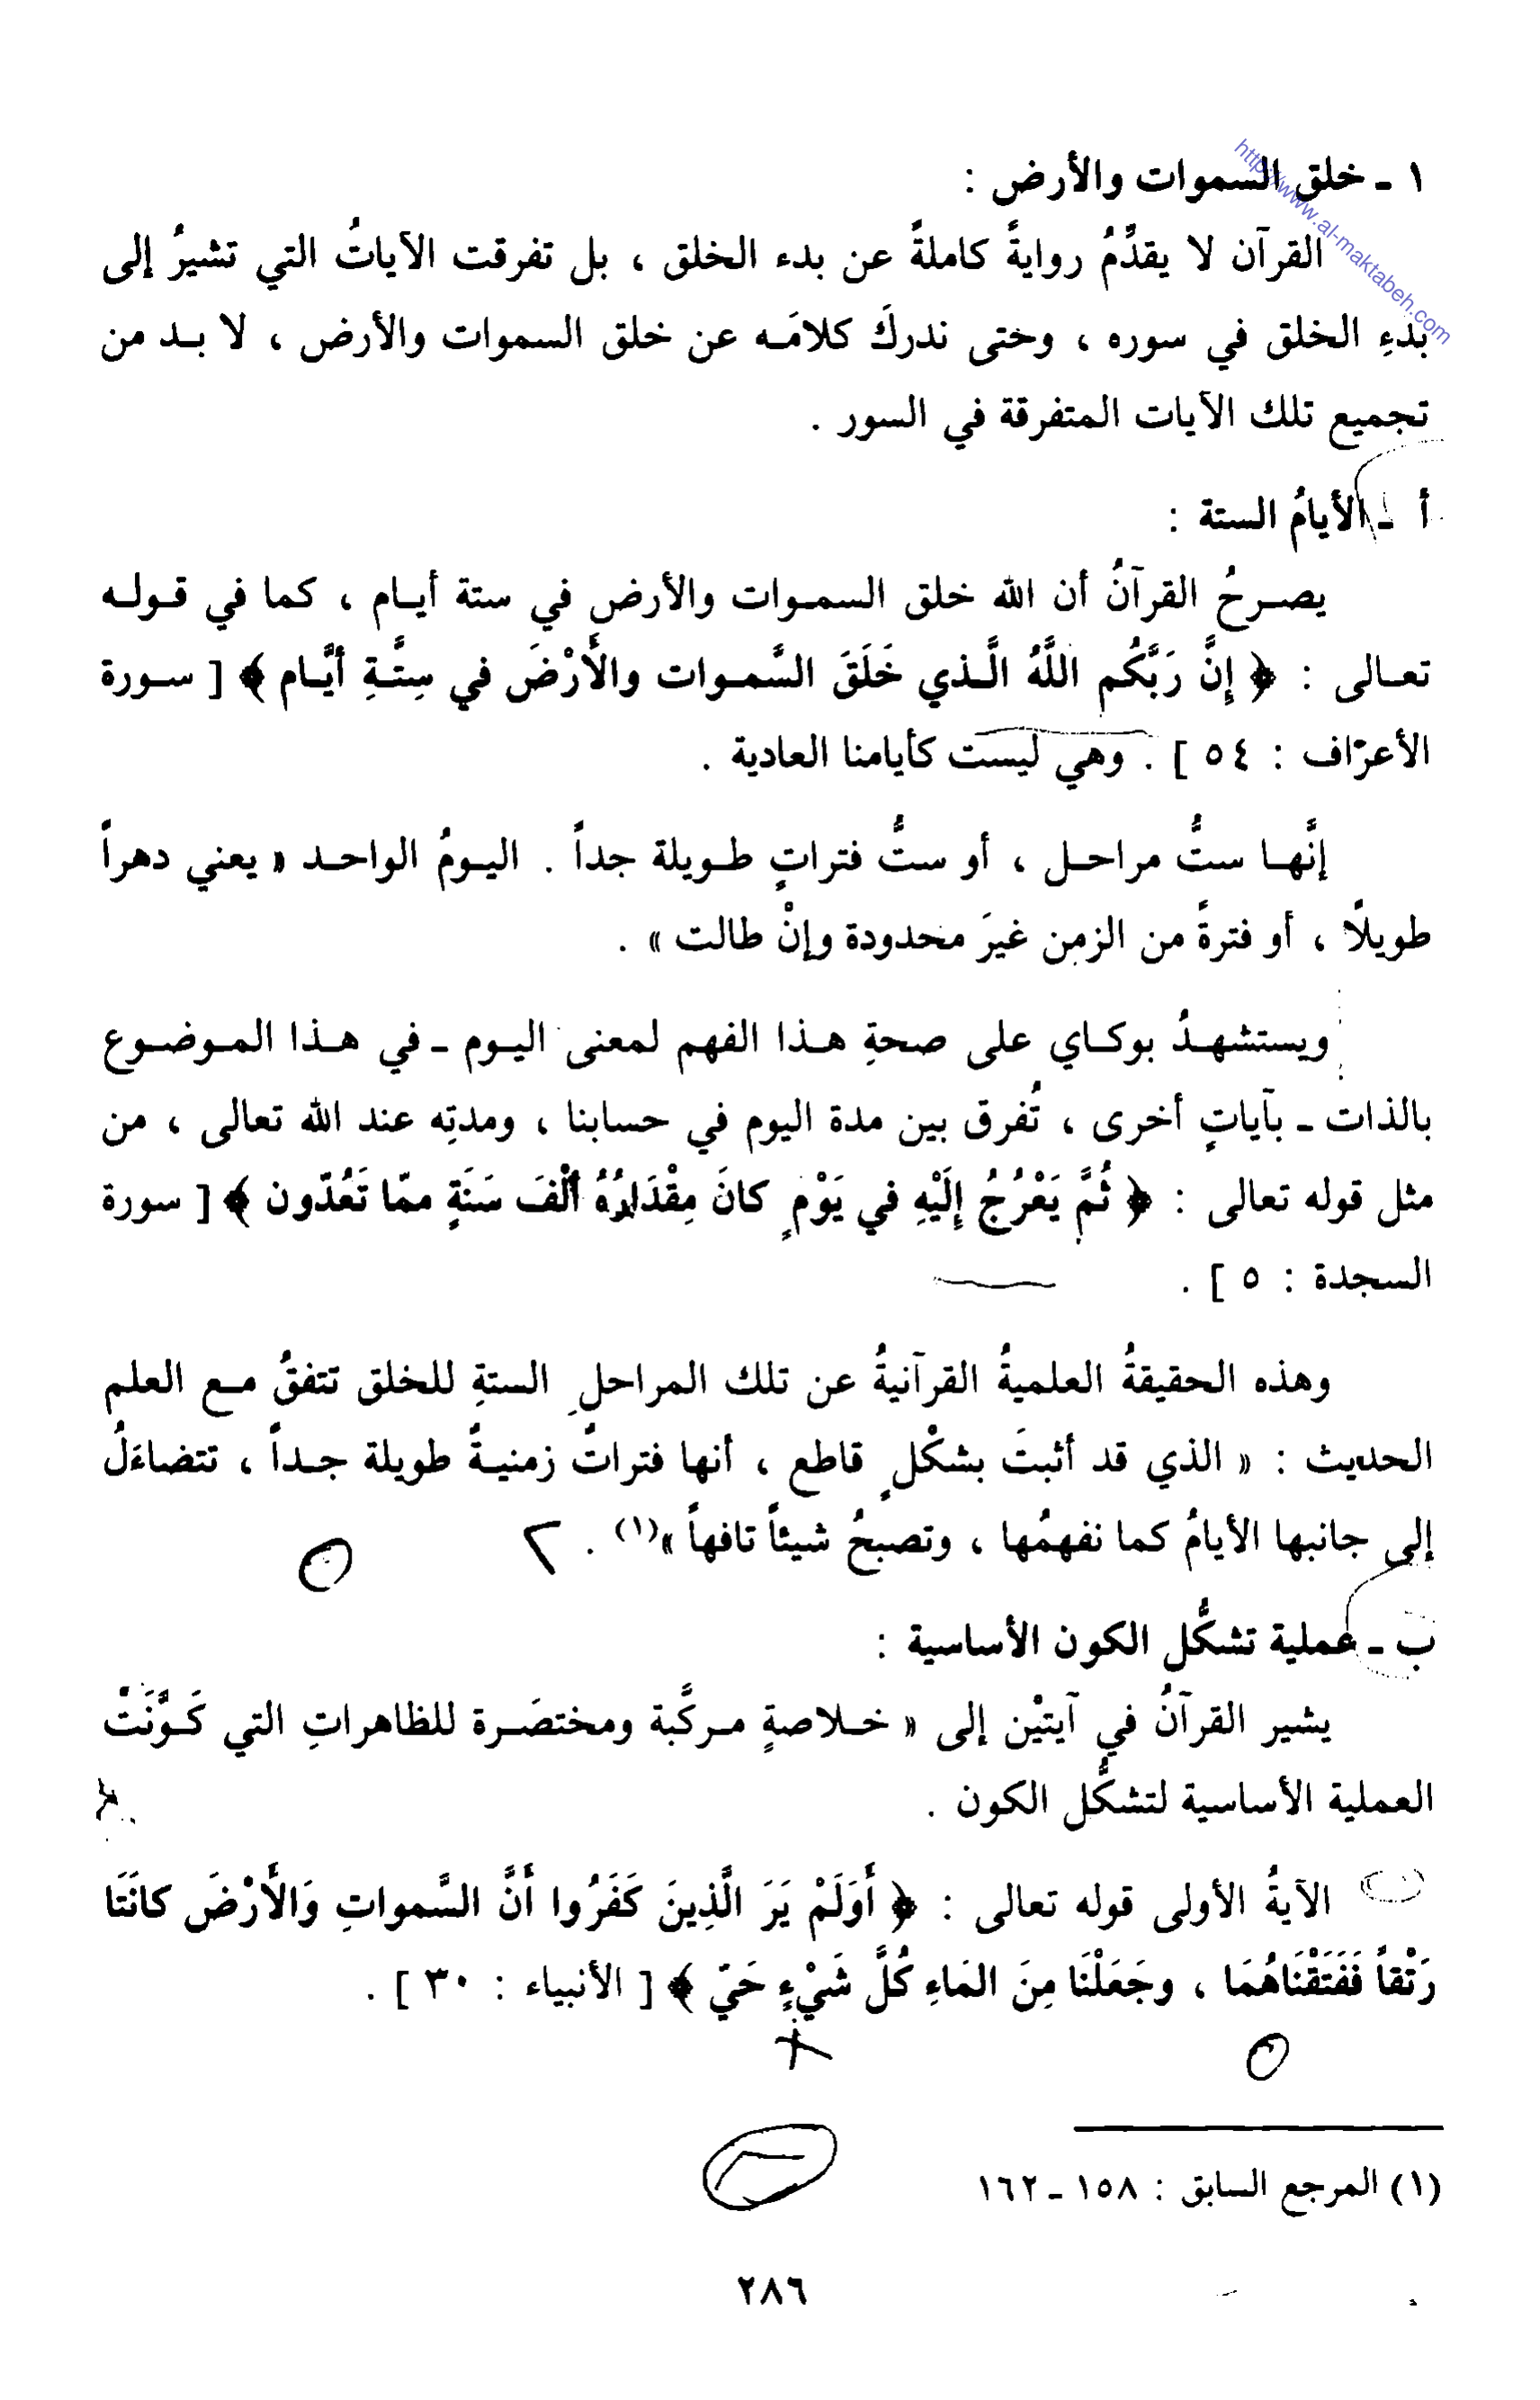 http://www.al-maktabeh.com
١ ـ خلق السموات والأرض :
القرآن لا يقدِّمُ روايةً كاملةً عن بدء الخلق ، بل تفرقت الآياتُ التي تشيرُ إلى
بدءِ الخلق في سوره ، وحتى ندركَ كلامَـه عن خلق السموات والأرض ، لا بـد من
تجميع تلك الآيات المتفرقة في السور .
أ ـ الأيامُ الستة :
يصـرحُ القرآنُ أن الله خلق السمـوات والأرض في ستة أيـام ، كما في قـولـه
تعـالى : ﴿ إِنَّ رَبَّكُم اللَّهُ الَّـذي خَلَقَ السَّمـوات والأَرْضَ في سِتَّـةِ أيَّـام ﴾ [ سـورة
الأعراف : ٥٤ ] . وهي ليست كأيامنا العادية .
إنَّهـا ستُّ مراحـل ، أو ستُّ فتراتٍ طـويلة جداً . اليـومُ الواحـد « يعني دهراً
طويلاً ، أو فترةً من الزمن غيرَ محدودة وإنْ طالت » .
ويستشهـدُ بوكـاي على صحةِ هـذا الفهم لمعنى اليـوم ـ في هـذا المـوضـوع
بالذات ـ بآياتٍ أخرى ، تُفرق بين مدة اليوم في حسابنا ، ومدتِه عند الله تعالى ، من
مثل قوله تعالى : ﴿ ثُمَّ يَعْرُجُ إِلَيْهِ في يَوْمٍ كانَ مِقْدَارُهُ أَلْفَ سَنَةٍ ممّا تَعُدّون ﴾ [ سورة
السجدة : ٥ ] .
وهذه الحقيقةُ العلميةُ القرآنيةُ عن تلك المراحلِ الستةِ للخلق تتفقُ مـع العلم
الحديث : « الذي قد أثبتَ بشكْلٍ قاطع ، أنها فتراتٌ زمنيـةٌ طويلة جـداً ، تتضاءَلُ
إلى جانبها الأيامُ كما نفهمُها ، وتصبحُ شيئاً تافهاً »(١) .
ب ـ عملية تشكُّل الكون الأساسية :
يشير القرآنُ في آيتيْن إلى « خـلاصةٍ مـركَّبة ومختصَـرة للظاهراتِ التي كَـوَّنَتْ
العملية الأساسية لتشكُّل الكون .
الآيةُ الأولى قوله تعالى : ﴿ أَوَلَمْ يَرَ الَّذِينَ كَفَرُوا أَنَّ السَّمواتِ وَالأَرْضَ كانَتَا
رَتْقاً فَفَتَقْنَاهُمَا ، وجَعَلْنَا مِنَ المَاءِ كُلَّ شَيْءٍ حَيّ ﴾ [ الأنبياء : ٣٠ ] .
(١) المرجع السابق : ١٥٨ ـ ١٦٢
٢٨٦